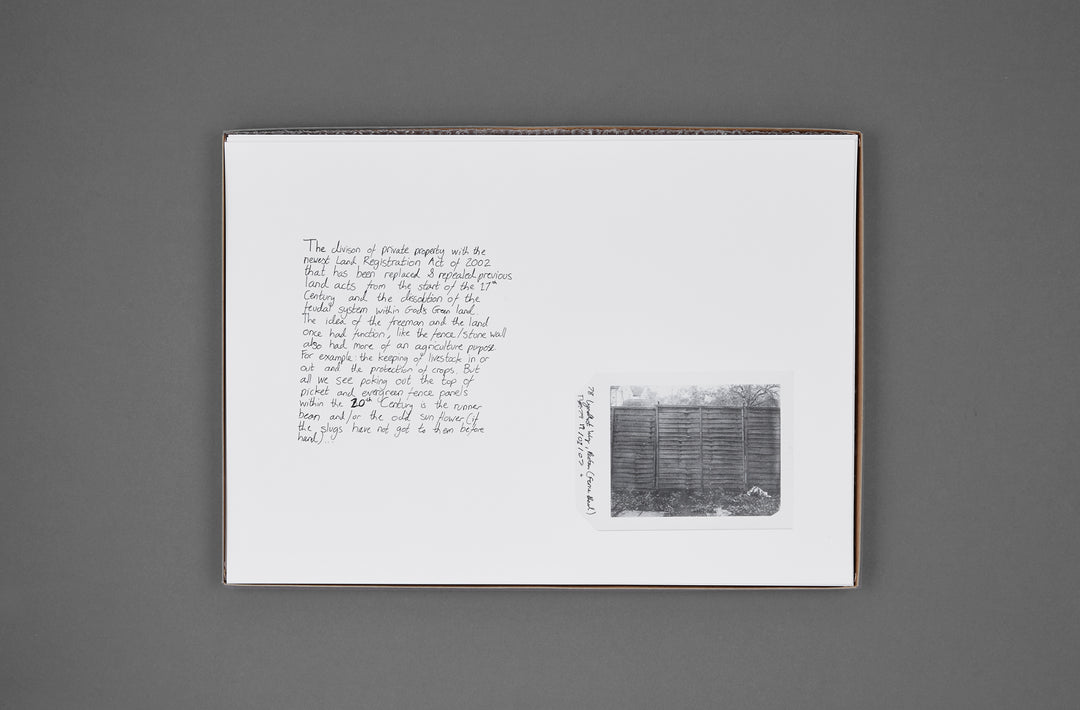 The divison of private property with the
newest Land Registration Act of 2002
that has been replaced & repealed previous
land acts from the start of the 17th
Century and the desolution of the
feudal system within Gods Green land.
The idea of the freeman and the land
once had function, like the fence/stone wall
also had more of an agriculture purpose.
For example: the keeping of livestock in or
out and the protection of crops. But
all we see poking out the top of
picket and evergreen fence panels
within the 20th Century is the runner
bean and/or the odd sun flower (if
the slugs have not got to them before
hand)...
78 Way, (Fence
19/02/07